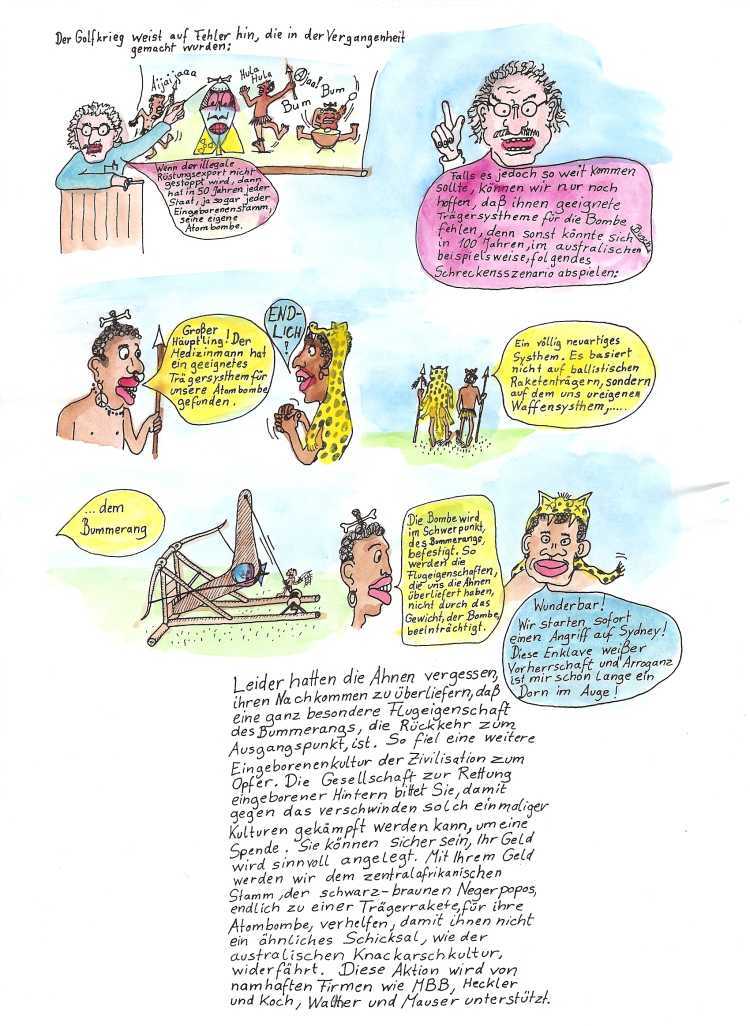 Der Golfkrieg weist auf Fehler hin, die in der Vergangenheit
gemacht wurden:
Aijaijaaa
Hula
Hula
Ajaa!
Bum
Bum
Wenn der illegale
Rüstungsexport nicht
gestoppt wird, dann
hat in 50 Jahren jeder
Staat, ja sogar jeder
Eingeborenenstamm,
seine eigene
Atombombe.
Falls es jedoch so weit kommen
sollte, können wir nur noch
hoffen, daß ihnen geeignete
Trägersystheme für die Bombe
fehlen, denn sonst könnte sich
in 100 Jahren, im australischen Busch
beispielsweise, folgendes
Schreckensszenario abspielen:
Großer
Häuptling! Der
Medizinmann hat
ein geeignetes
Trägersysthem für
unsere Atombombe
gefunden.
END-
LICH!
Ein völlig neuartiges
Systhem. Es basiert
nicht auf ballistischen
Raketenträgern, sondern
auf dem uns ureigenen
Waffensysthem,.....
... dem
Bummerang
Die Bombe wird
im Schwerpunkt,
des Bummerangs,
befestigt. So
werden die
Flugeigenschaften,
die uns die Ahnen
überliefert haben,
nicht durch das
Gewicht, der Bombe,
beeinträchtigt.
Wunderbar!
Wir starten sofort
einen Angriff auf Sydney!
Diese Enklave weißer
Vorherrschaft und Arroganz
ist mir schon lange ein
Dorn im Auge!
Leider hatten die Ahnen vergessen,
ihren Nachkommen zu überliefern, daß
eine ganz besondere Flugeigenschaft
des Bummerangs, die Rückkehr zum
Ausgangspunkt, ist. So fiel eine weitere
Eingeborenenkultur der Zivilisation zum
Opfer. Die Gesellschaft zur Rettung
eingeborener Hintern bittet Sie, damit
gegen das verschwinden solch einmaliger
Kulturen gekämpft werden kann, um eine
Spende. Sie können sicher sein, Ihr Geld
wird sinnvoll angelegt. Mit Ihrem Geld
werden wir dem zentralafrikanischen
Stamm, der schwarz-braunen Negerpopos,
endlich zu einer Trägerrakete, für ihre
Atombombe, verhelfen, damit ihnen nicht
ein ähnliches Schicksal, wie der
australischen Knackarschkultur,
widerfährt. Diese Aktion wird von
namhaften Firmen wie MBB, Heckler
und Koch, Walther und Mauser unterstützt.